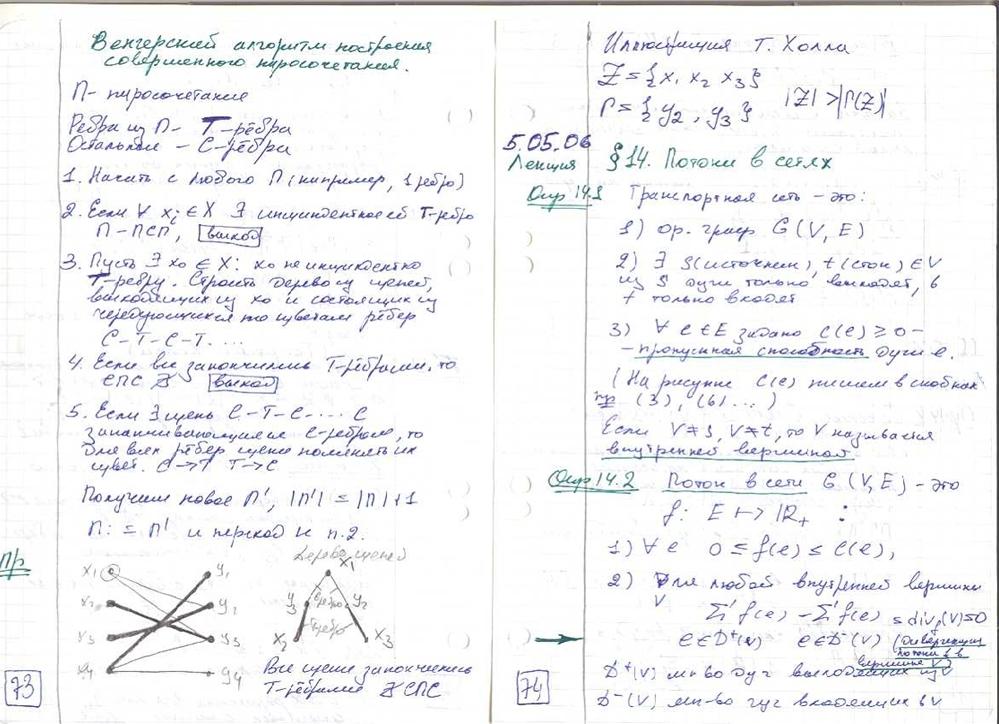 Венгерский алгоритм построения
совершенного паросочетания.
П - паросочетание
Рёбра из П - Т-рёбра
Остальные - С-рёбра
1. Начать с любого П (например, 1 ребро)
2. Если ∀ xᵢ ∈ X ∃ инцидентное ей Т-ребро
П - ПСП, выход
3. Пусть ∃ x₀ ∈ X: x₀ не инцидентно
Т-ребру. Строить дерево из цепей,
выходящих из x₀ и состоящих из
чередующихся по цветам рёбер
С-Т-С-Т. ...
4. Если все закончились Т-рёбрами, то
СПС ∄ выход
5. Если ∃ цепь С-Т-С-... С
заканчивающаяся С-ребром, то
для всех рёбер цепи поменять их
цвет. С→Т Т→С
Получим новое П', |П'| = |П|+1
П: = П' и переход к п.2.
Пр
Дерево цепей
x₁ y₁
x₂ y₂
x₃ y₃
y₄ y₄
x₁
y₃ ребро y₂
Т-ребро
x₂ x₃
Все цепи закончились
Т-рёбрами ∄ СПС
73
Иллюстрация Т. Холла
Z = {x₁ x₂ x₃}
Γ = {y₂, y₃} |Z| > |Γ(Z)|
5.05.06
Лекция § 14. Потоки в сетях
Опр 14.1 Транспортная сеть - это:
1) ор. граф G(V, E)
2) ∃ s(источник), t(сток) ∈ V
из s дуги только выходят, в
t только входят
3) ∀ e ∈ E задано c(e) ≥ 0 -
- пропускная способность дуги e.
(На рисунке c(e) пишем в скобках
пр (3), (6) ...)
Если V≠s, V≠t, то V называется
внутренней вершиной
Опр 14.2 Поток в сети G(V, E) - это
f: E ↦ ℝ₊ :
1) ∀ e 0 ≤ f(e) ≤ c(e),
2) Для любой внутренней вершины
V
Σ f(e) - Σ f(e) = div_f(V)=0
e∈D⁺(v) e∈D⁻(V) (дивергенция
потока f в
вершине V)
D⁺(V) мн-во дуг выходящих из V
D⁻(V) мн-во дуг входящих в V
74